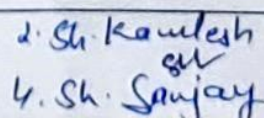 2. Sh. Kamlesh
4. Sh. Sanjay